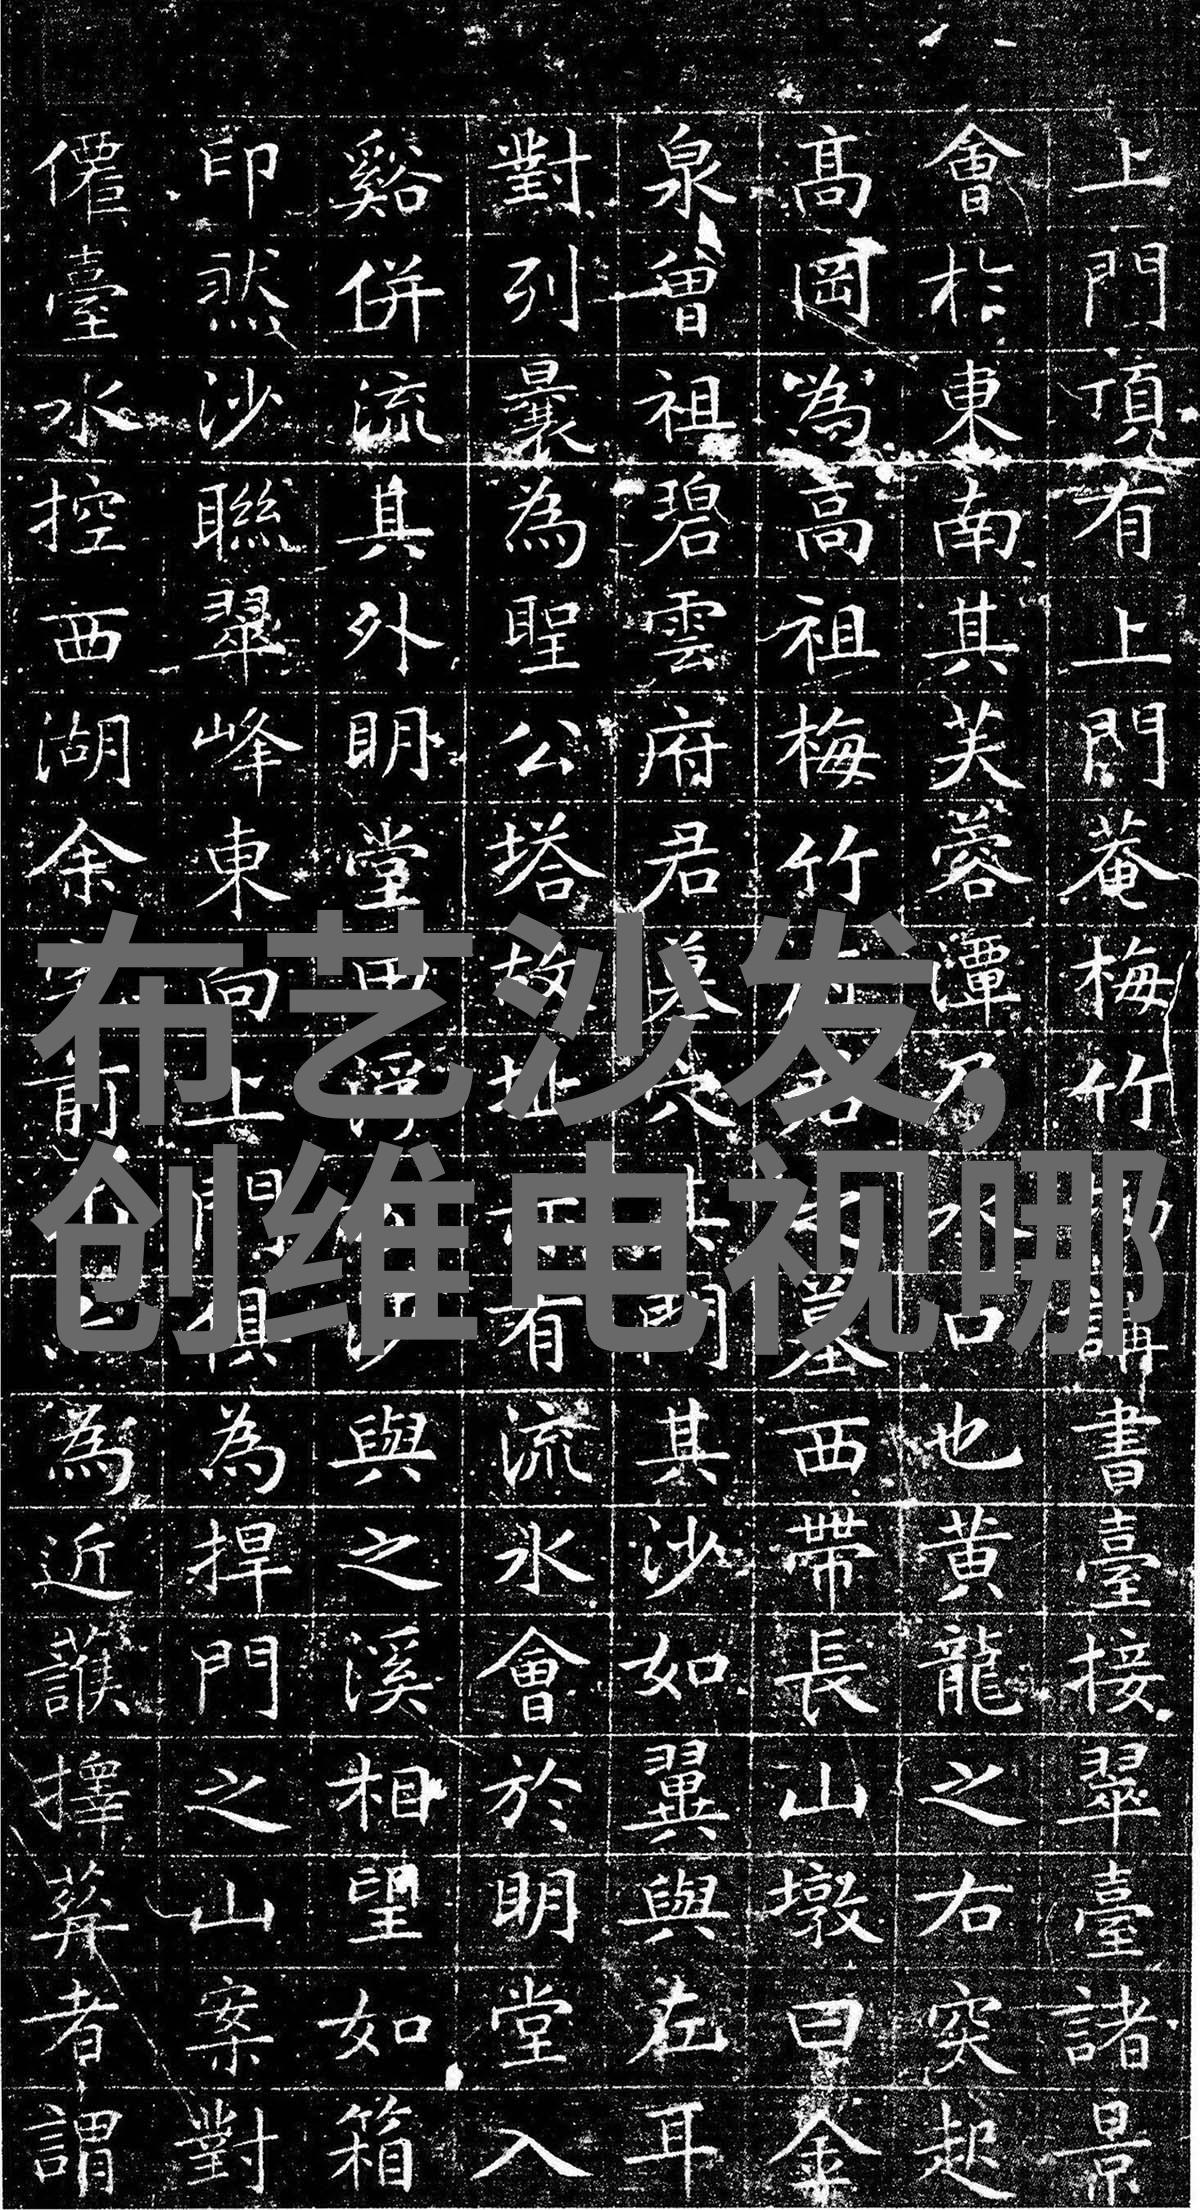 上門頂有上門菴梅竹講書臺接翠臺諸景
會於東南其芙蓉潭乃水口也黃龍之右突起
高岡為高祖梅竹府君之墓西帶長山墩曰金
泉曾祖碧雲府君墓穴其間其沙如翼與左耳
對列曩為聖公塔故址下有流水會於明堂入
谿併流其外明堂田浮沙與之溪相望如箱
印然沙聯翠峰東向上門俱為捍門之山案對
僊臺水控西湖余前為近議擇葬者謂
布艺沙发,
创维电视哪